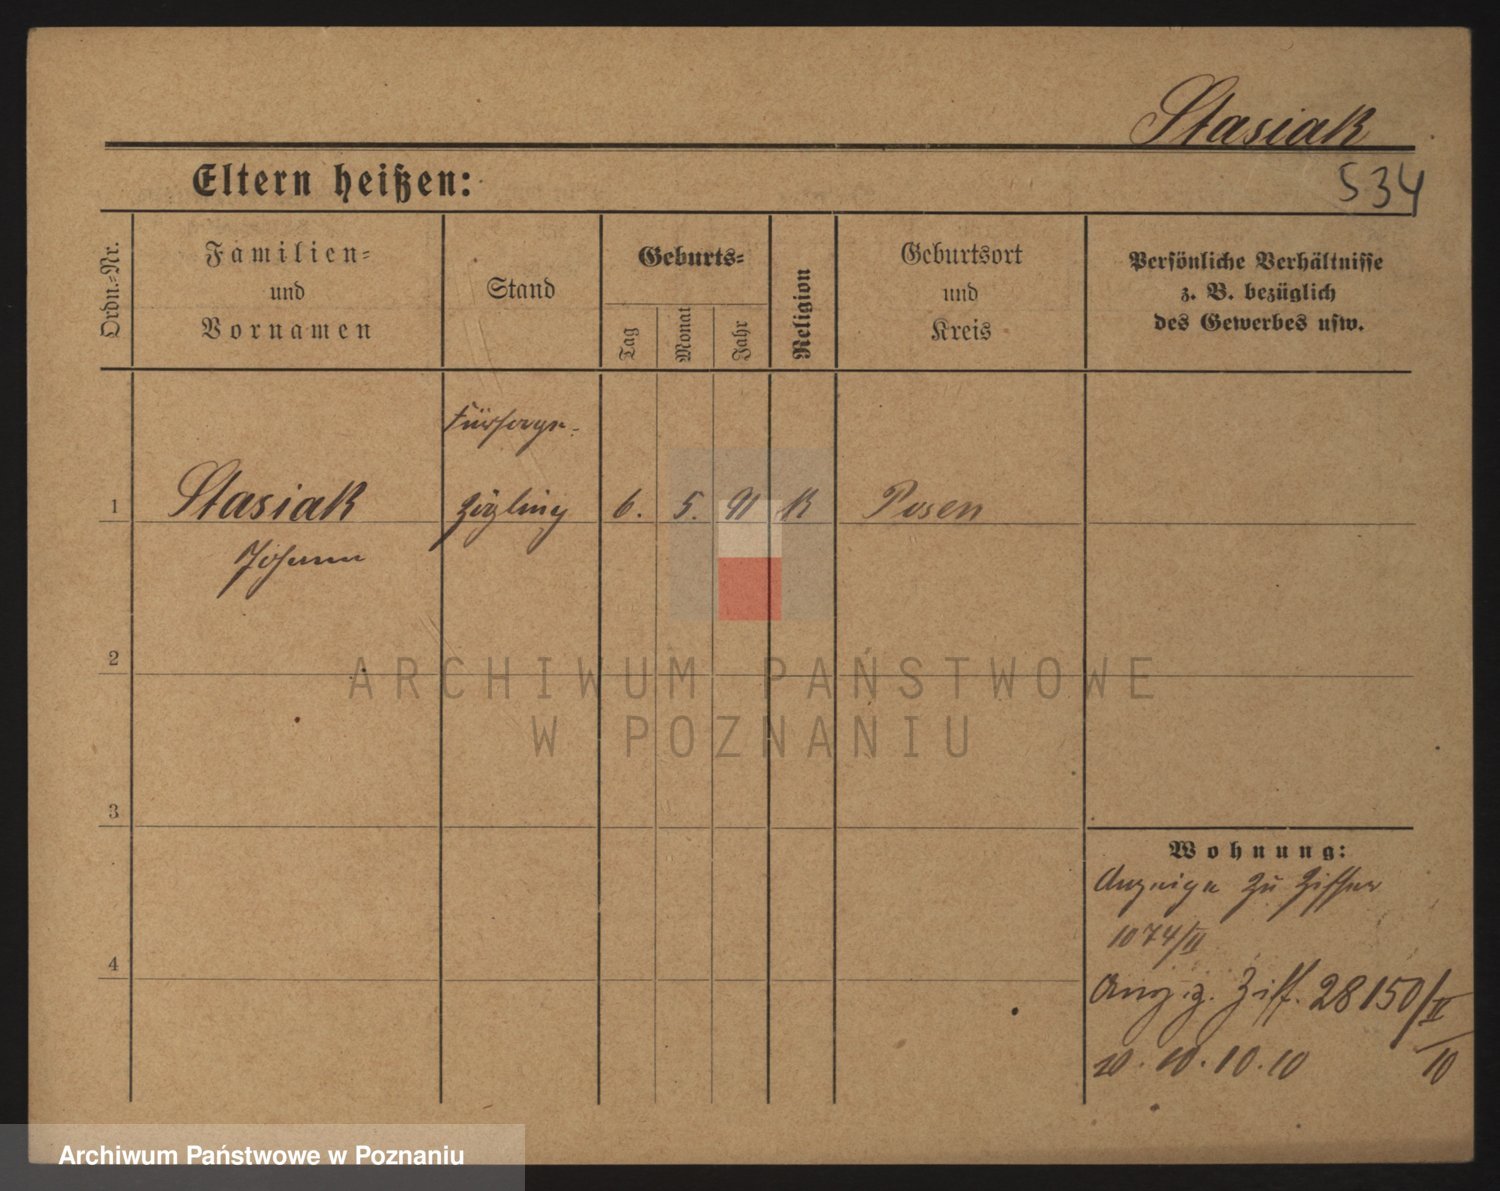 Stasiak
Eltern heißen:
534
Ordn.-Nr.
Familien-
und
Vornamen
Stand
Geburts-
Tag
Monat
Jahr
Religion
Geburtsort
und
Kreis
Persönliche Verhältnisse
z. B. bezüglich
des Gewerbes usw.
Fürsorge-
1 Stasiak zögling 6. 5. 91 K Posen
Johann
2
ARCHIWUM PAŃSTWOWE
W POZNANIU
3
Wohnung:
Anzeige zu Ziffer
1074/II
4
Anz. z. Ziff. 28150/II
10
10.10.10
Archiwum Państwowe w Poznaniu